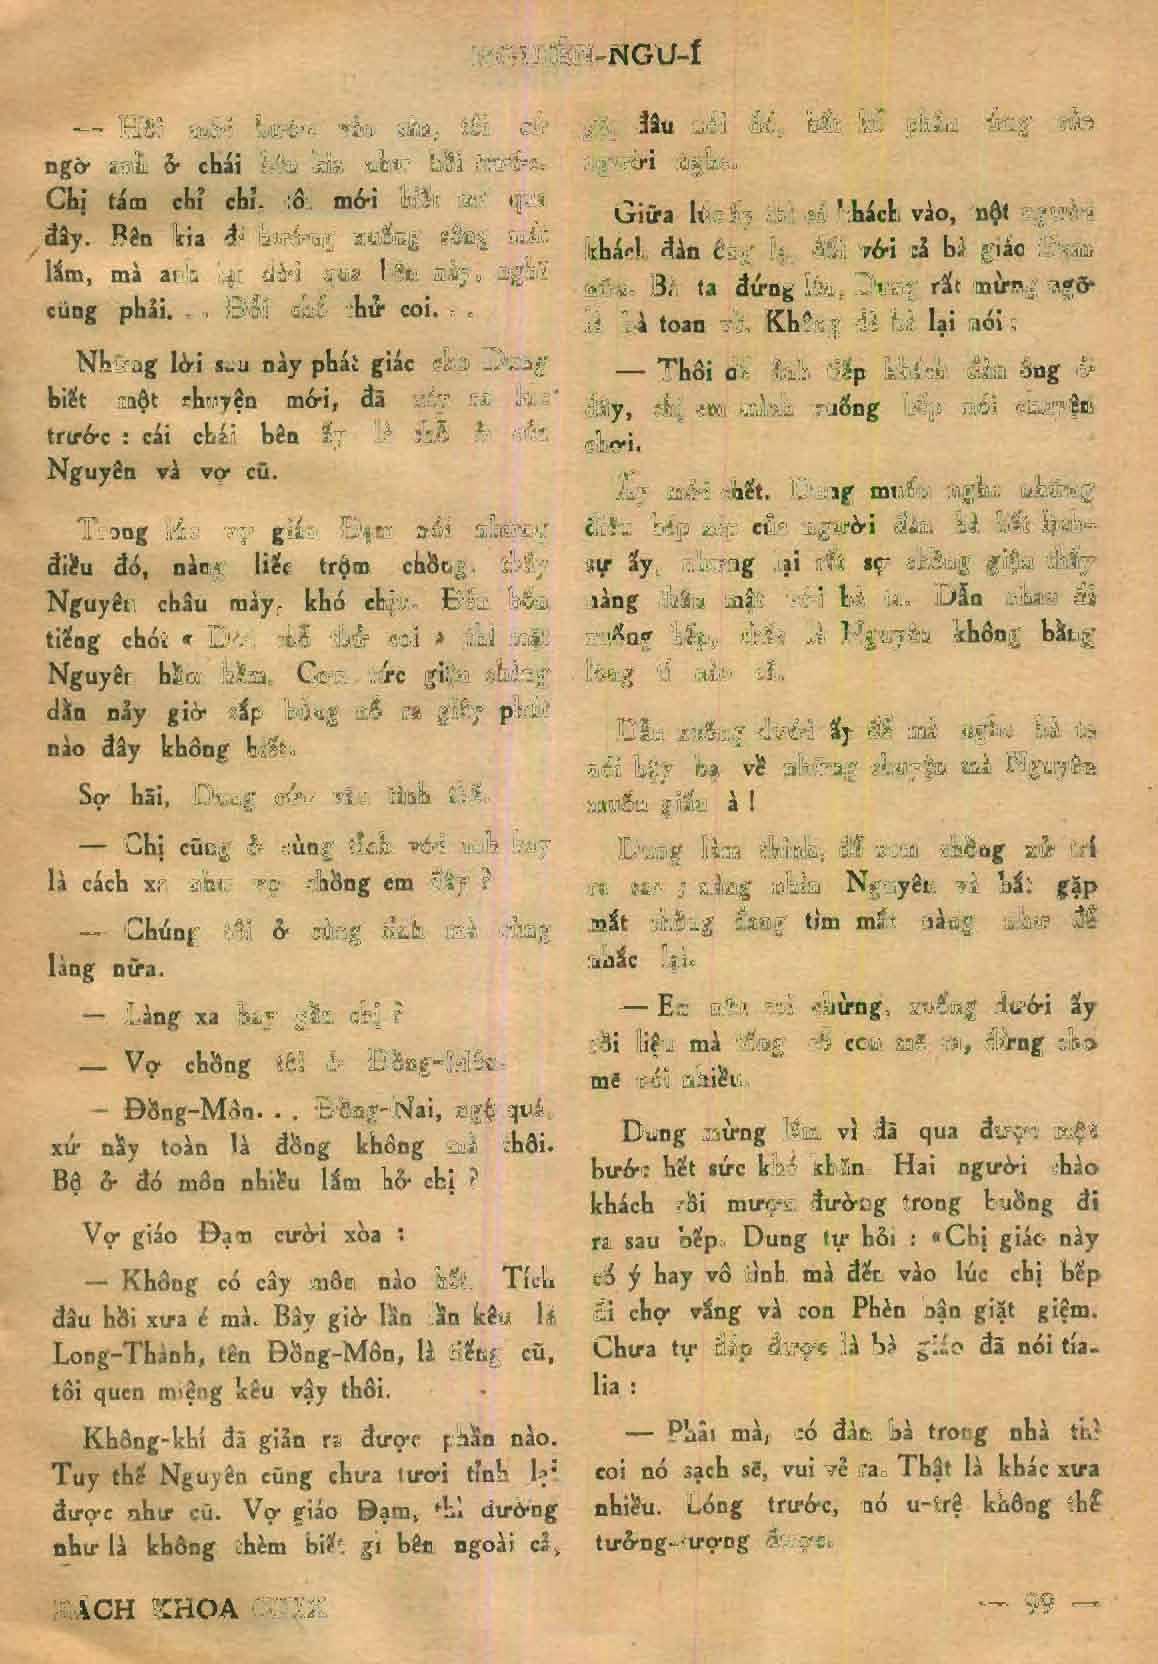 NGUIÊN-NGU-Í
— Hồi mới bước vào sân, tôi cứ
ngờ anh ở chái bên kia như hồi trước.
Chị tám chỉ chỉ, tôi mới biết mà qua
đây. Bên kia đi hướng xuống sông mát
lắm, mà anh lại dời qua bên này, nghĩ
cũng phải. . . Đổi chỗ thử coi. . .
Những lời sau này phát giác cho Dung
biết một chuyện mới, đã xảy ra lúc
trước : cái chái bên ấy là chỗ ở của
Nguyên và vợ cũ.
Trong lúc vợ giáo Đạm nói nhưng
điều đó, nàng liếc trộm chồng, thấy
Nguyên châu mày, khó chịu. Đến bốn
tiếng chót « Đổi chỗ thử coi » thì mặt
Nguyên hầm hầm. Cơn tức giận chừng
dằn nảy giờ sắp bùng nổ ra giây phút
nào đây không biết.
Sợ hãi, Dung cứu vãn tình thế.
— Chị cũng ở cùng tỉnh với anh hay
là cách xa như vợ chồng em đây ?
— Chúng tôi ở cùng tỉnh mà cùng
làng nữa.
— Làng xa hay gần chị ?
— Vợ chồng tôi ở Đồng-Môn.
— Đồng-Môn. . . Đồng-Nai, ngộ quá,
xứ nầy toàn là đồng không mà thôi.
Bộ ở đó môn nhiều lắm hở chị ?
Vợ giáo Đạm cười xòa :
— Không có cây môn nào hết. Tích
đâu hồi xưa é mà. Bây giờ lần lần kêu là
Long-Thành, tên Đồng-Môn, là tiếng cũ,
tôi quen miệng kêu vậy thôi.
Không-khí đã giản ra được phần nào.
Tuy thế Nguyên cũng chưa tươi tỉnh lại
được như cũ. Vợ giáo Đạm, thì dường
như là không thèm biết gì bên ngoài cả,
gặp đâu nói đó, bất kể phản ứng của
người nghe.
Giữa lúc ấy thì có khách vào, một người
khách đàn ông lạ, đối với cả bà giáo Đạm
nữa. Bà ta đứng lên, Dung rất mừng ngỡ
là bà toan về. Không dè bà lại nói :
— Thôi để ảnh tiếp khách đàn ông ở
đây, chị em mình xuống bếp nói chuyện
chơi.
Ấy mới chết. Dung muốn nghe những
điều bép xép của người đàn bà bất lịch-
sự ấy, nhưng lại rất sợ chồng giận thấy
nàng thân mật với bà ta. Dẫn nhau đi
xuống bếp, chắc là Nguyên không bằng
lòng tí nào cả.
Dẫn xuống dưới ấy để mà nghe bà ta
nói bậy bạ về những chuyện mà Nguyên
muốn giấu à !
Dung làm thinh, để xem chồng xử trí
ra sao ; nàng nhìn Nguyên và bắt gặp
mắt chồng đang tìm mắt nàng như để
nhắc lại.
— Em nên coi chừng, xuống dưới ấy
rồi liệu mà tống cổ con mẻ ra, đừng cho
mẻ nói nhiều.
Dung mừng lắm vì đã qua được một
bước hết sức khó khăn. Hai người chào
khách rồi mượn đường trong buồng đi
ra sau bếp. Dung tự hỏi : «Chị giáo này
cố ý hay vô tình mà đến vào lúc chị bếp
đi chợ vắng và con Phèn bận giặt giệm.
Chưa tự đáp được là bà giáo đã nói tía-
lia :
— Phải mà, có đàn bà trong nhà thì
coi nó sạch sẽ, vui vẻ ra. Thật là khác xưa
nhiều. Lóng trước, nó u-trệ không thể
tưởng-tượng được.
BÁCH KHOA
— 99 —